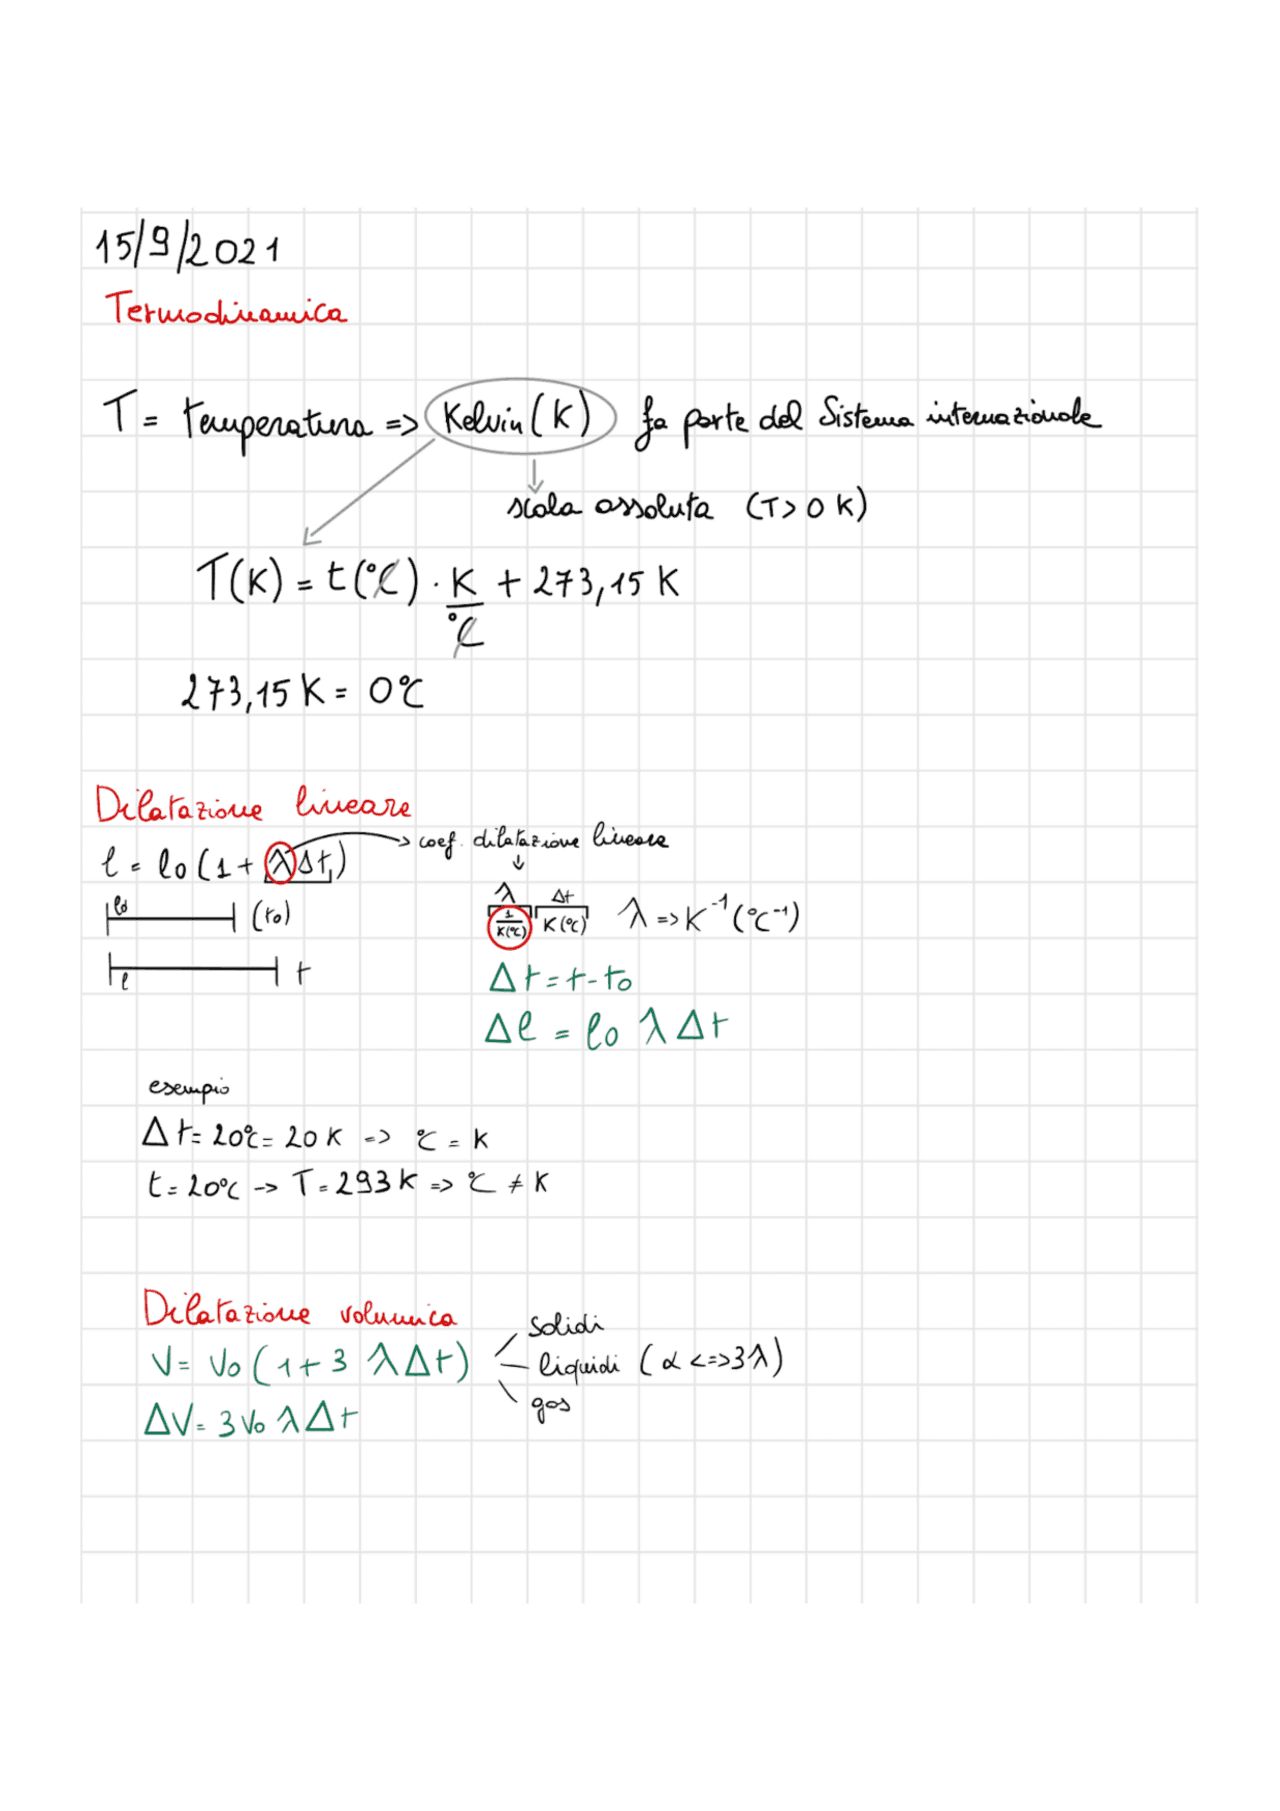 15/9/2021
Termodinamica
T = temperatura => Kelvin (K) fa parte del Sistema internazionale
scala assoluta (T > 0 K)
T(K) = t(°C) · K/°C + 273,15 K
273,15 K = 0°C
Dilatazione lineare
l = l0 (1 + λΔt) → coef. dilatazione lineare
l0 (t0)
λ Δt
1/K(°C) K(°C) λ => K⁻¹ (°C⁻¹)
l t
Δt = t - t0
Δl = l0 λ Δt
esempio
Δt = 20°C = 20 K => °C = K
t = 20°C -> T = 293 K => °C ≠ K
Dilatazione volumica
V = V0 (1 + 3 λΔt)
solidi
liquidi (α <=> 3λ)
gas
ΔV = 3 V0 λ Δt